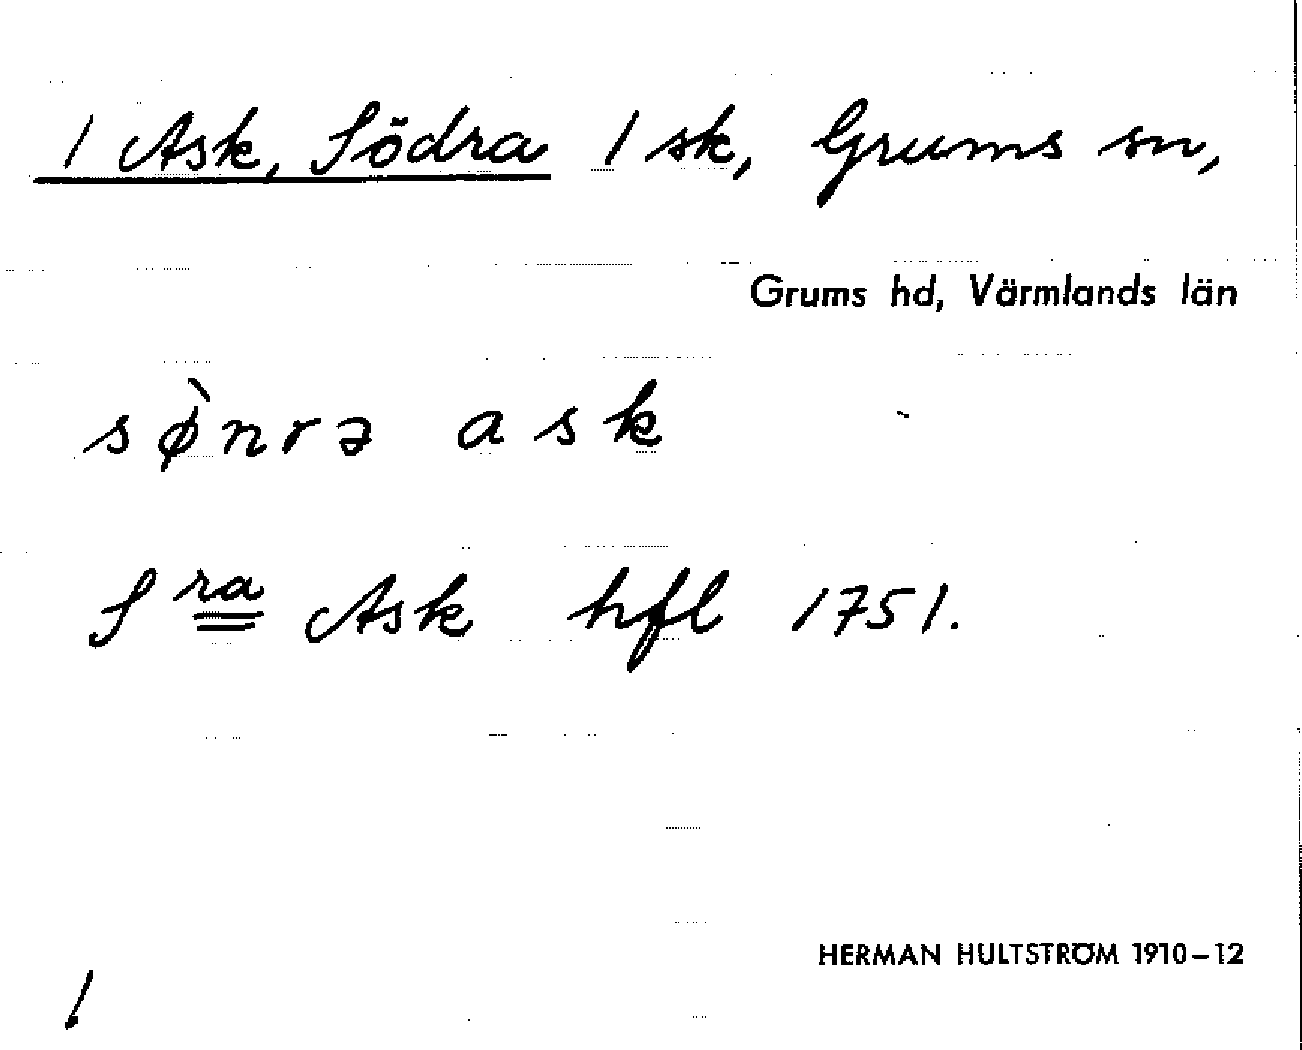 1 Ask, Södra 1 sk, Grums sn,
Grums hd, Värmlands län
sø̀nrə ask
S ra Ask hfl 1751.
HERMAN HULTSTRÖM 1910–12
1